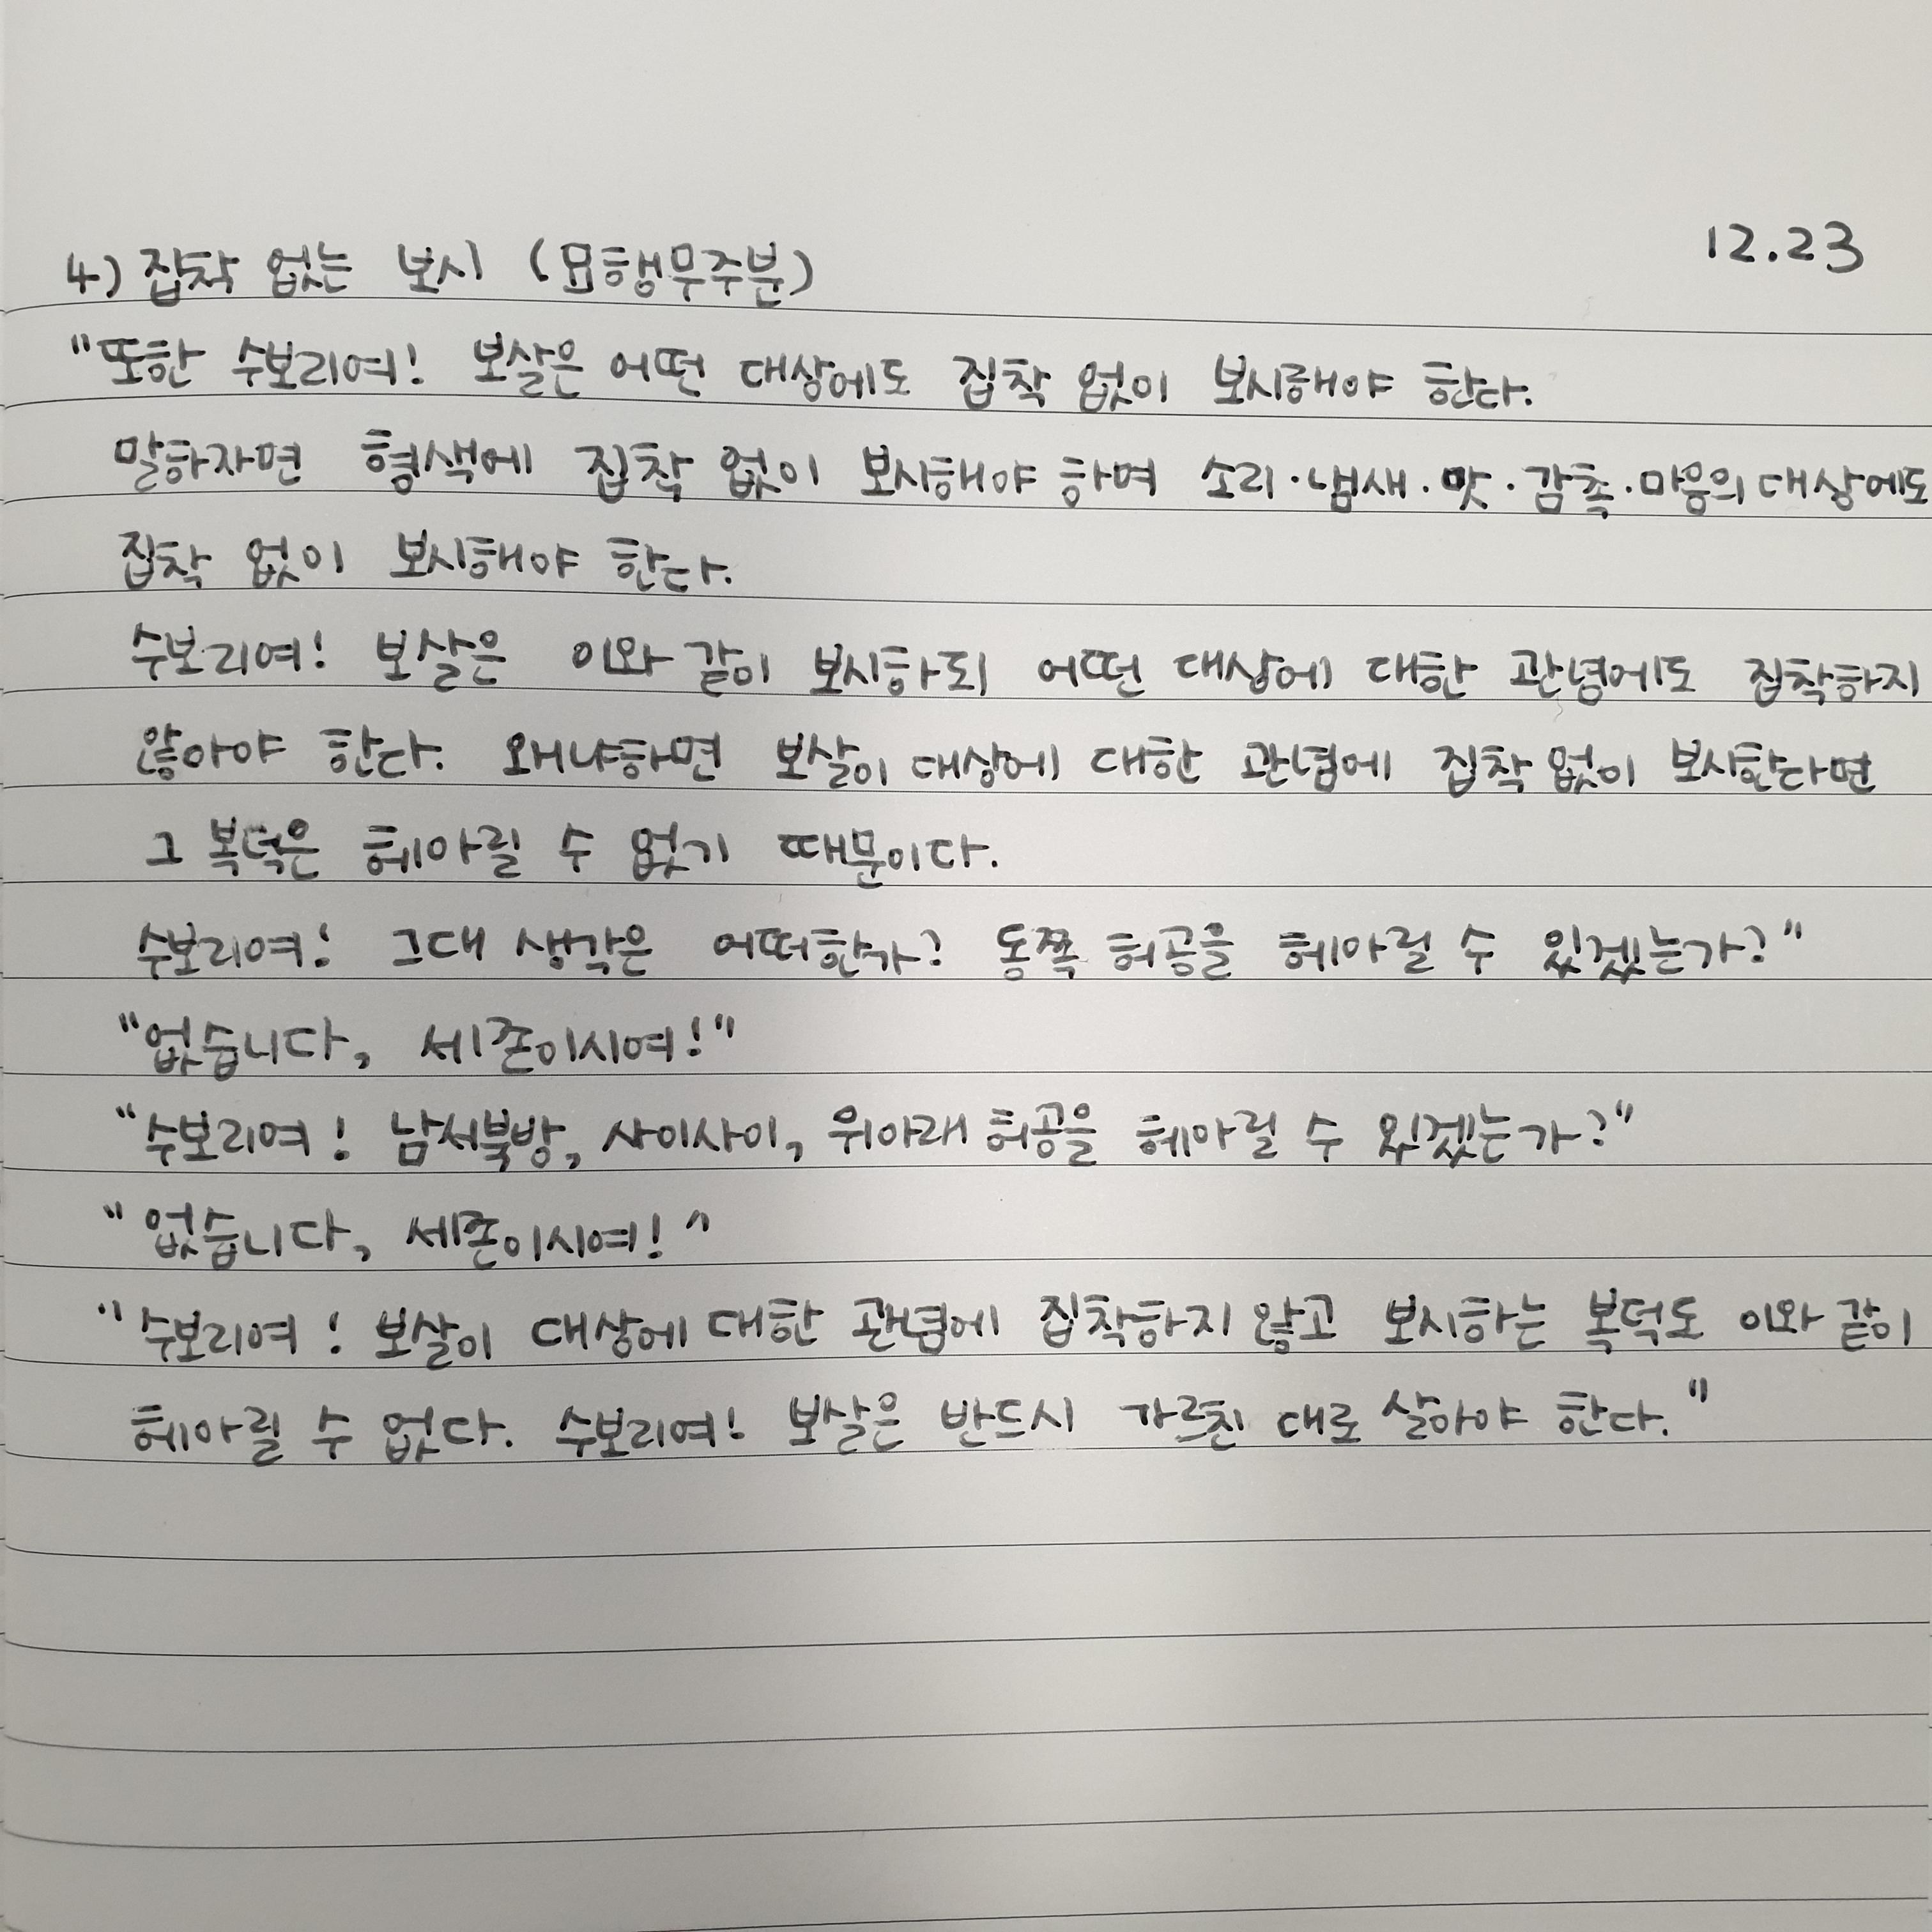 12.23
4) 집착 없는 보시 (묘행무주분)
"또한 수보리여! 보살은 어떤 대상에도 집착 없이 보시해야 한다.
말하자면 형색에 집착 없이 보시해야 하며 소리·냄새·맛·감촉·마음의 대상에도
집착 없이 보시해야 한다.
수보리여! 보살은 이와 같이 보시하되 어떤 대상에 대한 관념에도 집착하지
않아야 한다. 왜냐하면 보살이 대상에 대한 관념에 집착 없이 보시한다면
그 복덕은 헤아릴 수 없기 때문이다.
수보리여! 그대 생각은 어떠한가? 동쪽 허공을 헤아릴 수 있겠는가?"
"없습니다, 세존이시여!"
"수보리여! 남서북방, 사이사이, 위아래 허공을 헤아릴 수 있겠는가?"
"없습니다, 세존이시여!"
"수보리여! 보살이 대상에 대한 관념에 집착하지 않고 보시하는 복덕도 이와 같이
헤아릴 수 없다. 수보리여! 보살은 반드시 가르친 대로 살아야 한다."